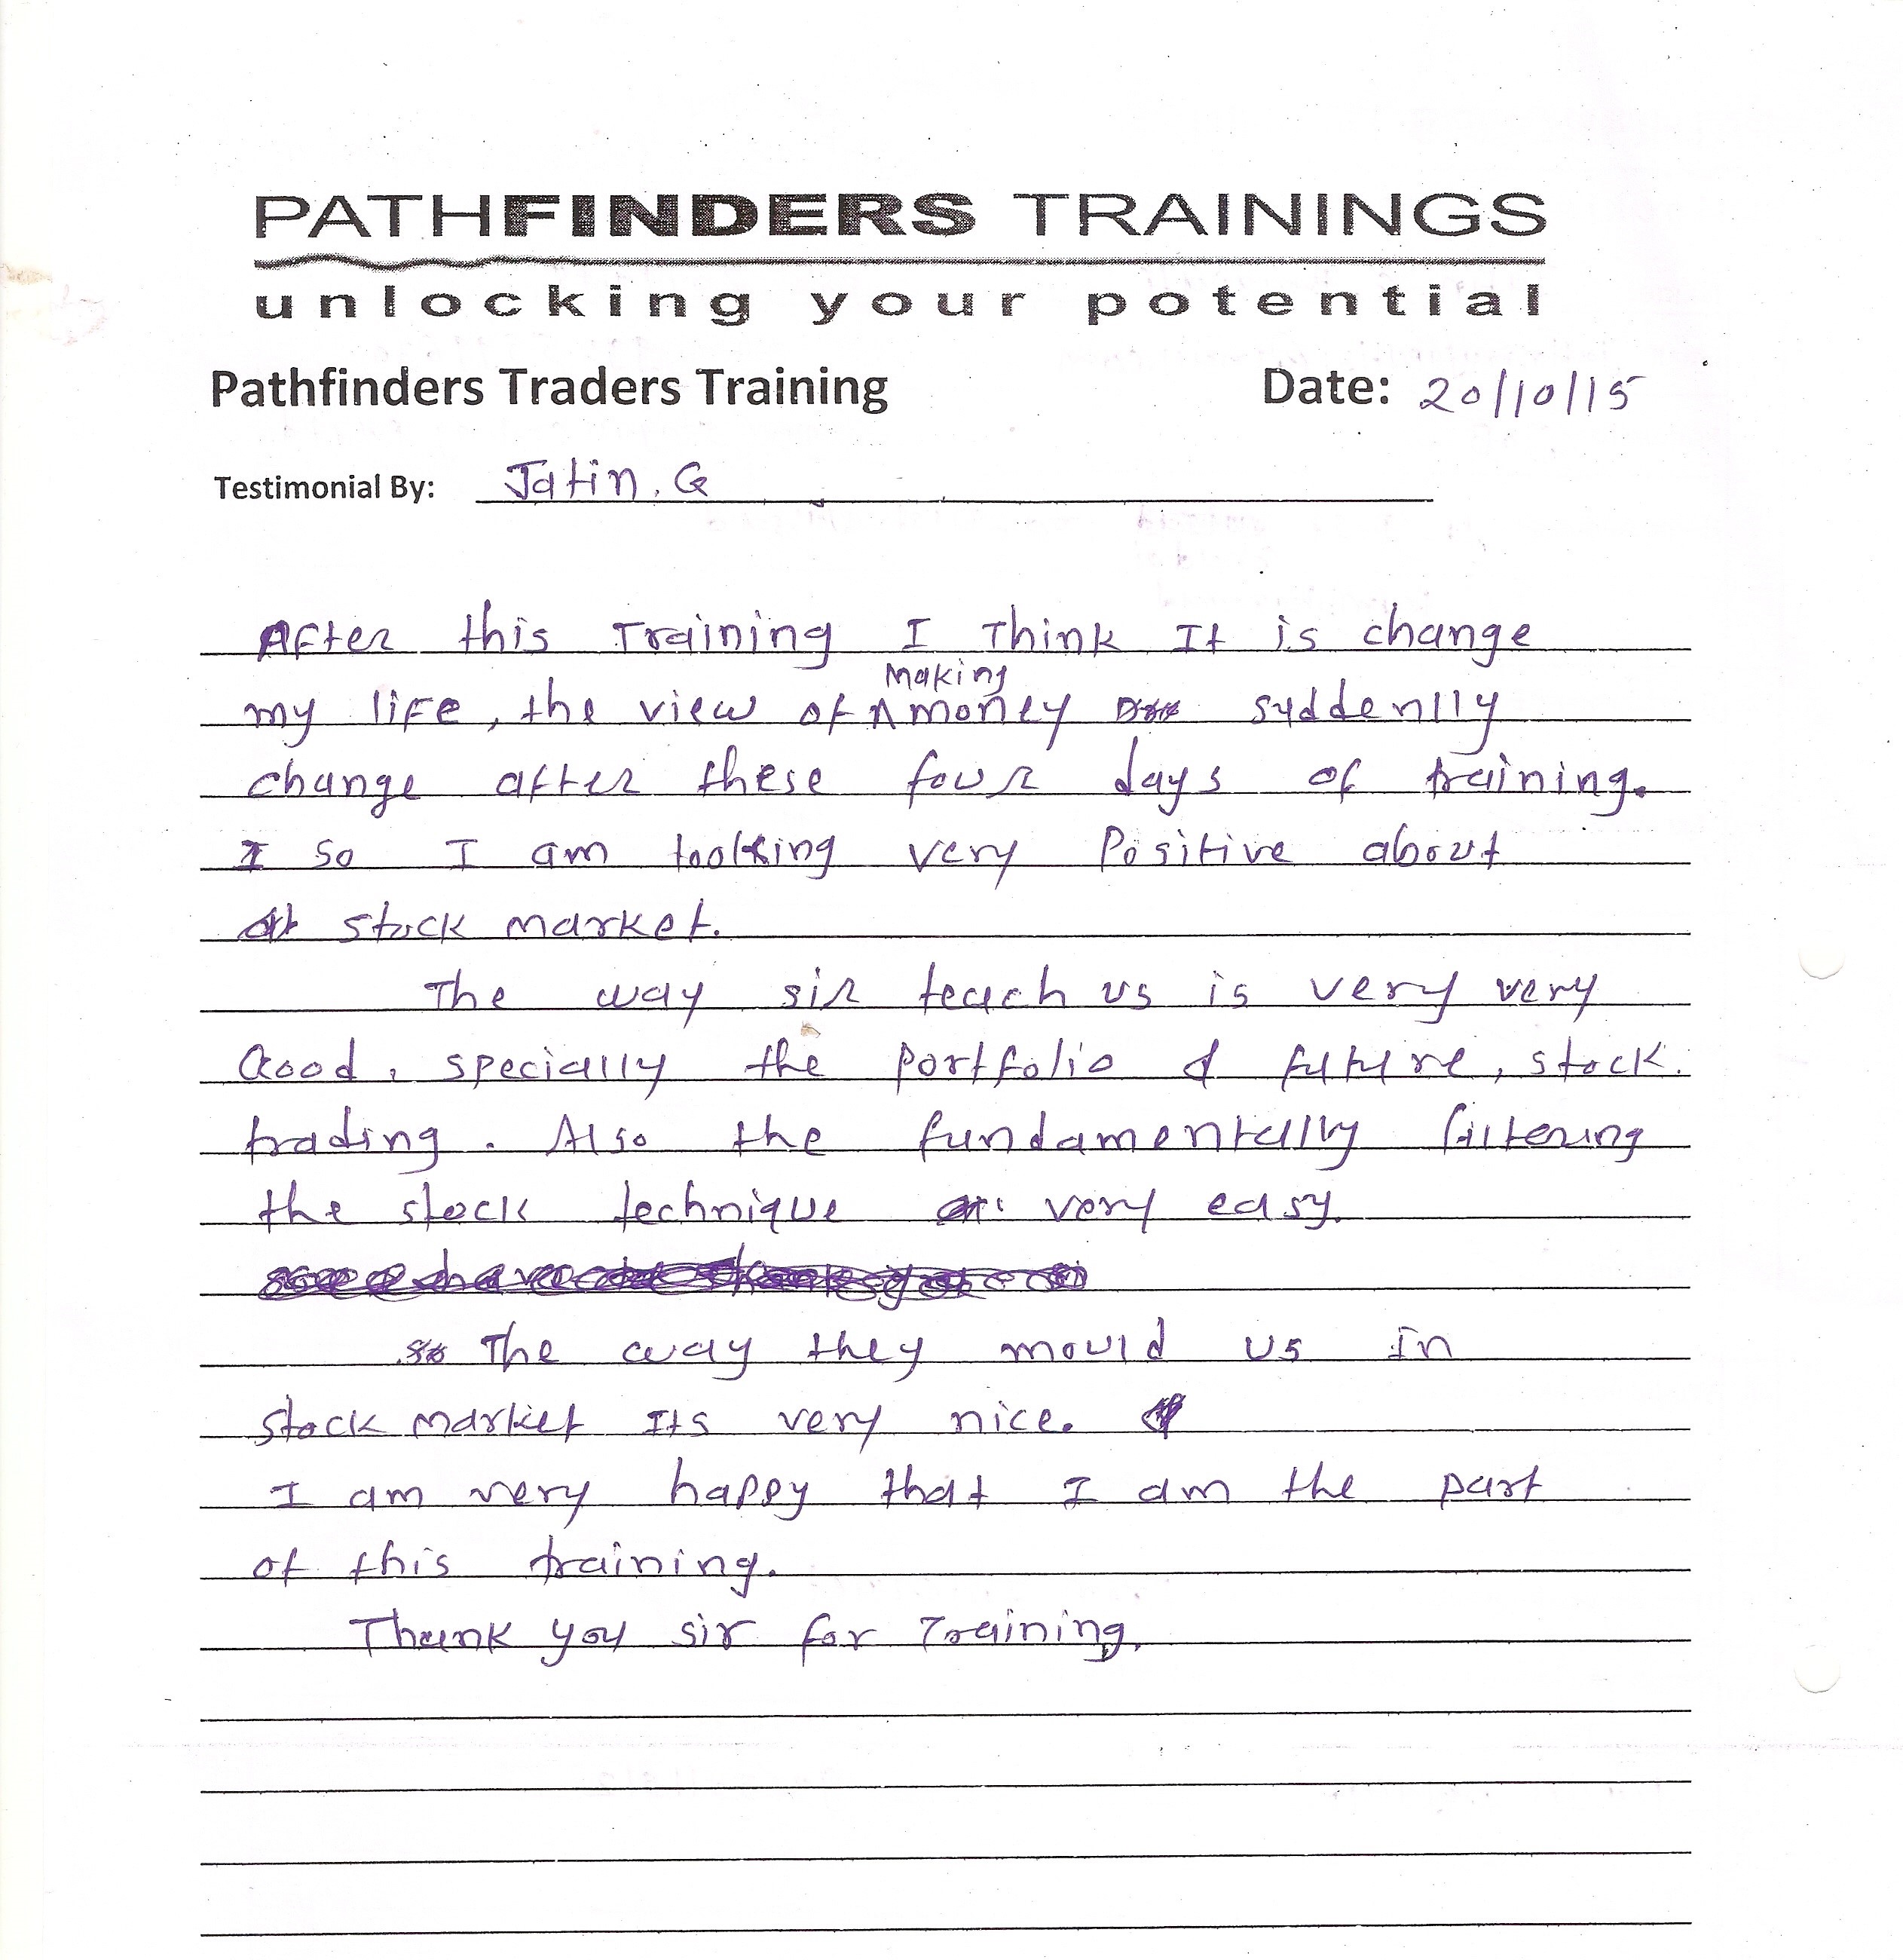 PATHFINDERS TRAININGS
unlocking your potential
Pathfinders Traders Training Date: 20/10/15
Testimonial By: Jatin. G
After this Training I Think It is change
my life, the view of making money suddenlly
change after these four days of training.
so I am looking very Positive about
stock market.
The way sir teach us is very very
Good, specially the portfolio & future, stock.
trading. Also the fundamentally filtering
the stock technique very easy.
The way they mould us in
stock market Its very nice.
I am very happy that I am the part
of this training.
Thank you sir for Training.